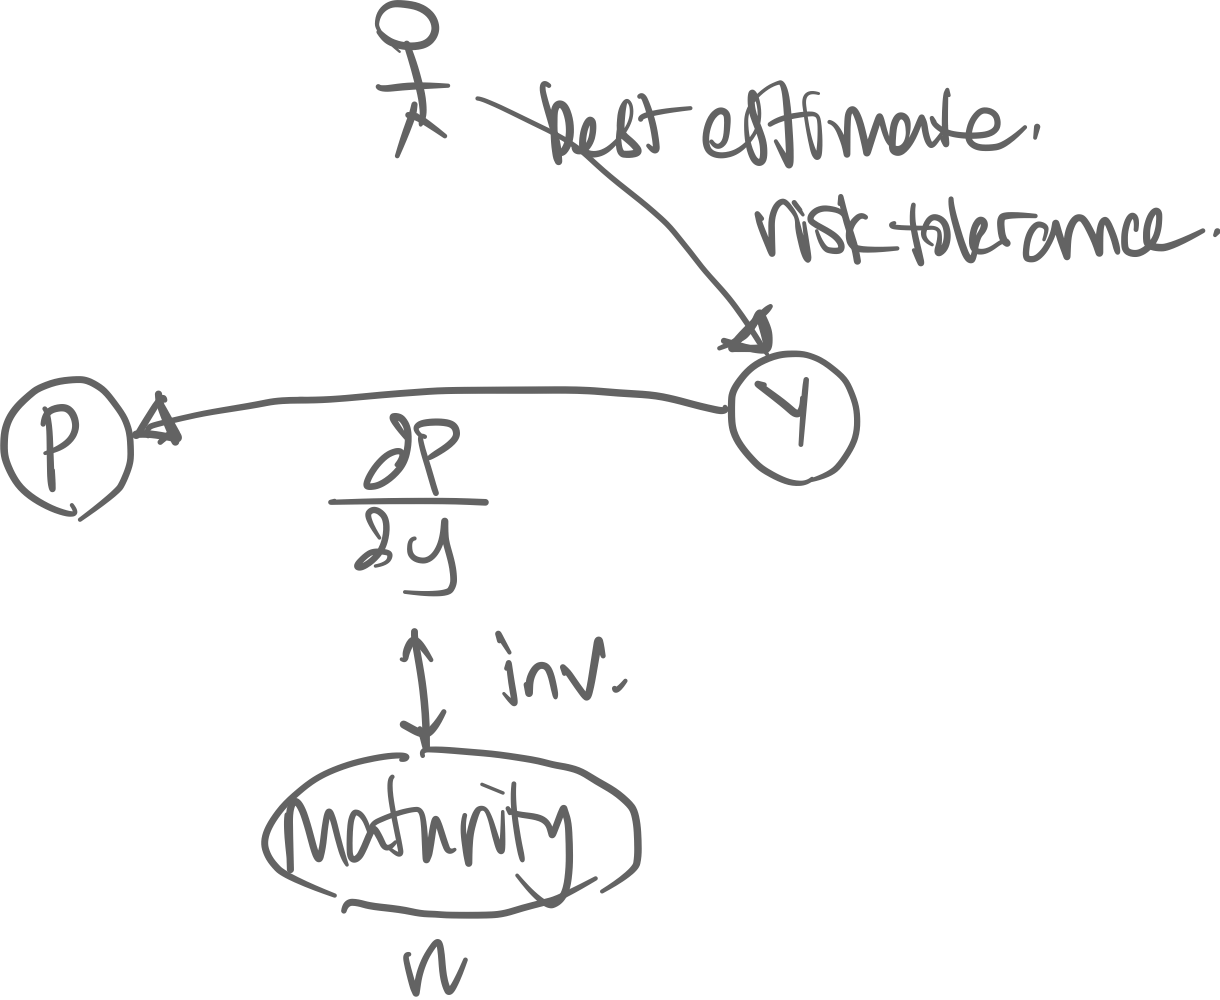 best estimate.
risk tolerance.
P
Y
∂P
∂y
inv.
maturity
n